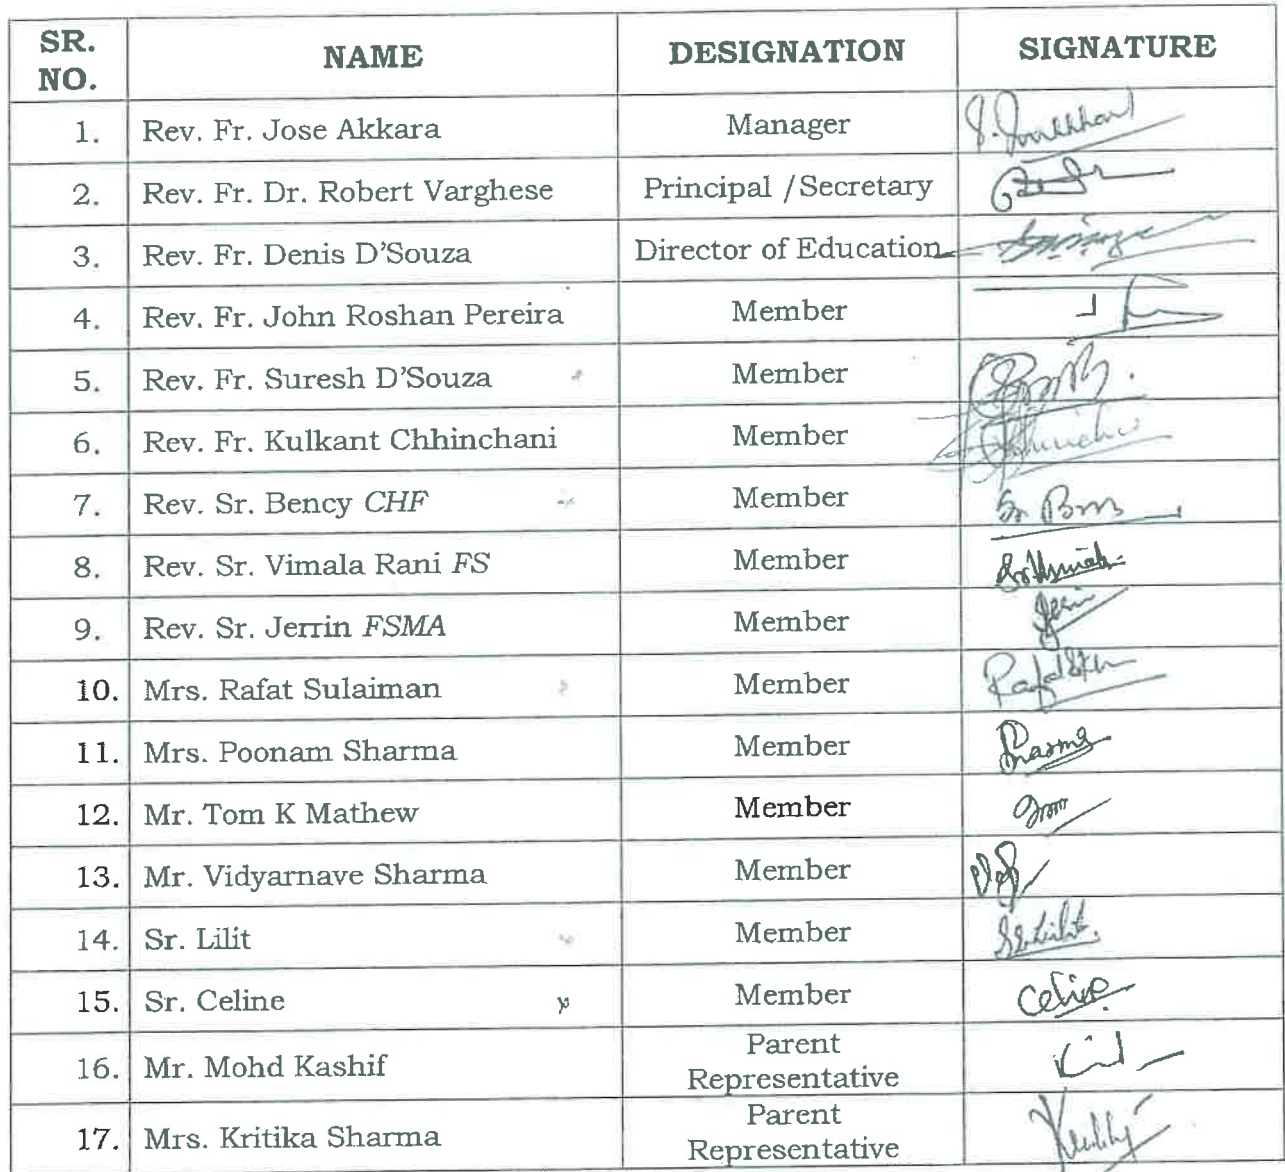 SR. NO. NAME DESIGNATION SIGNATURE
1. Rev. Fr. Jose Akkara Manager
2. Rev. Fr. Dr. Robert Varghese Principal /Secretary
3. Rev. Fr. Denis D'Souza Director of Education
4. Rev. Fr. John Roshan Pereira Member
5. Rev. Fr. Suresh D'Souza Member
6. Rev. Fr. Kulkant Chhinchani Member
7. Rev. Sr. Bency CHF Member
8. Rev. Sr. Vimala Rani FS Member
9. Rev. Sr. Jerrin FSMA Member
10. Mrs. Rafat Sulaiman Member
11. Mrs. Poonam Sharma Member
12. Mr. Tom K Mathew Member
13. Mr. Vidyarnave Sharma Member
14. Sr. Lilit Member
15. Sr. Celine Member Celine
16. Mr. Mohd Kashif Parent Representative
17. Mrs. Kritika Sharma Parent Representative